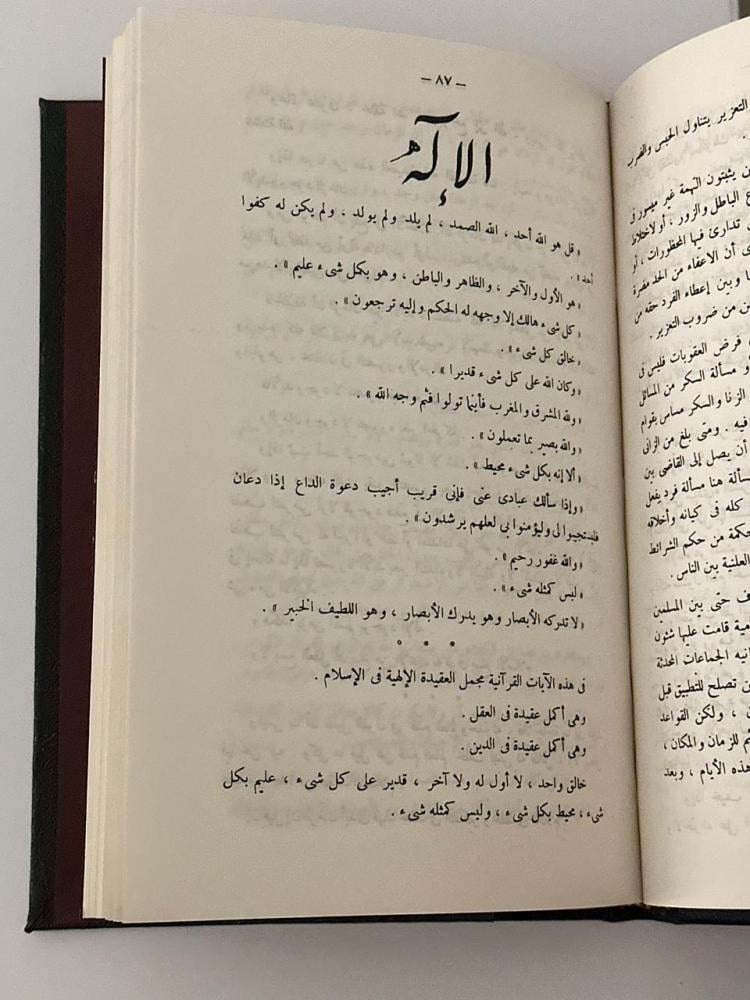 — ٨٧ —
الإله
« قل هو الله أحد ، الله الصمد ، لم يلد ولم يولد ، ولم يكن له كفوا
أحد » .
« هو الأول والآخر ، والظاهر والباطن ، وهو بكل شىء عليم » .
« كل شىء هالك إلا وجهه له الحكم وإليه ترجعون » .
« خالق كل شىء » .
« وكان الله على كل شىء قديرا » .
« ولله المشرق والمغرب فأينما تولوا فثم وجه الله » .
« والله بصير بما تعملون » .
« ألا إنه بكل شىء محيط » .
« وإذا سألك عبادى عنى فإنى قريب أجيب دعوة الداع إذا دعان
فليستجيبوا لى وليؤمنوا بي لعلهم يرشدون » .
« والله غفور رحيم » .
« ليس كمثله شىء » .
« لا تدركه الأبصار وهو يدرك الأبصار ، وهو اللطيف الخبير » .
فى هذه الآيات القرآنية مجمل العقيدة الإلهية فى الإسلام .
وهى أكمل عقيدة فى العقل .
وهى أكمل عقيدة فى الدين .
خالق واحد ، لا أول له ولا آخر ، قدير على كل شىء ، عليم بكل
شىء ، محيط بكل شىء ، وليس كمثله شىء .
التعزير يتناول الحبس والضرب
يثبتون التهمة غير ميسور فى
الباطل والزور ، أو لاختلاط
تدارئ فيها المحظورات ، أو
أن الاعفاء من الحد مضرة
وبين إعطاء الفرد حقه من
من ضروب التعزير .
فرض العقوبات فليس فى
مسألة السكر من المسائل
الزنا والسكر مساس بقوام
فيه . ومتى بلغ من الزانى
أن يصل إلى القاضى بين
مسألة هنا مسألة فرد يفعل
كله فى كيانه وأخلاقه
حكمة من حكم الشرائط
العلنية بين الناس .
حتى بين المسلمين
قامت عليها شئون
الجماعات المحدثة
تصلح للتطبيق قبل
، ولكن القواعد
للزمان والمكان ،
هذه الأيام ، وبعد